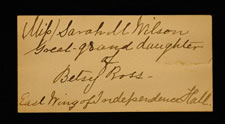 (Miss) Sarah M Wilson
Great-granddaughter
of
Betsy Ross-
East Wing of Independence Hall.